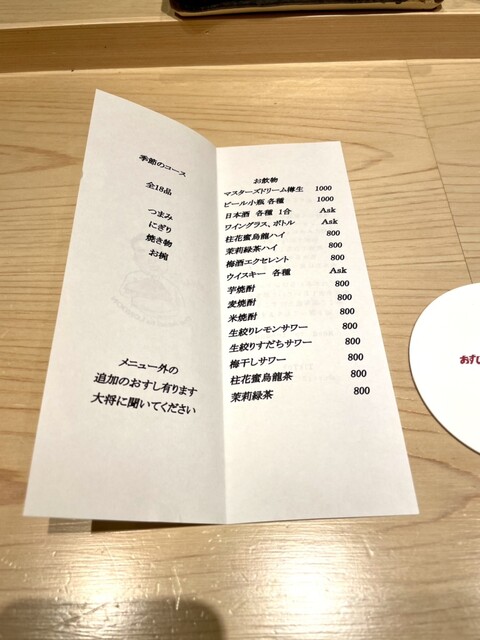 季節のコース
全18品
つまみ
にぎり
焼き物
お椀
メニュー外の
追加のおすし有ります
大将に聞いてください
お飲物
マスターズドリーム樽生 1000
ビール小瓶 各種 1000
日本酒 各種 1合 Ask
ワイングラス、ボトル Ask
桂花蜜烏龍ハイ 800
茉莉緑茶ハイ 800
梅酒エクセレント 800
ウイスキー 各種 Ask
芋焼酎 800
麦焼酎 800
米焼酎 800
生絞りレモンサワー 800
生絞りすだちサワー 800
梅干しサワー 800
桂花蜜烏龍茶 800
茉莉緑茶 800
おすし